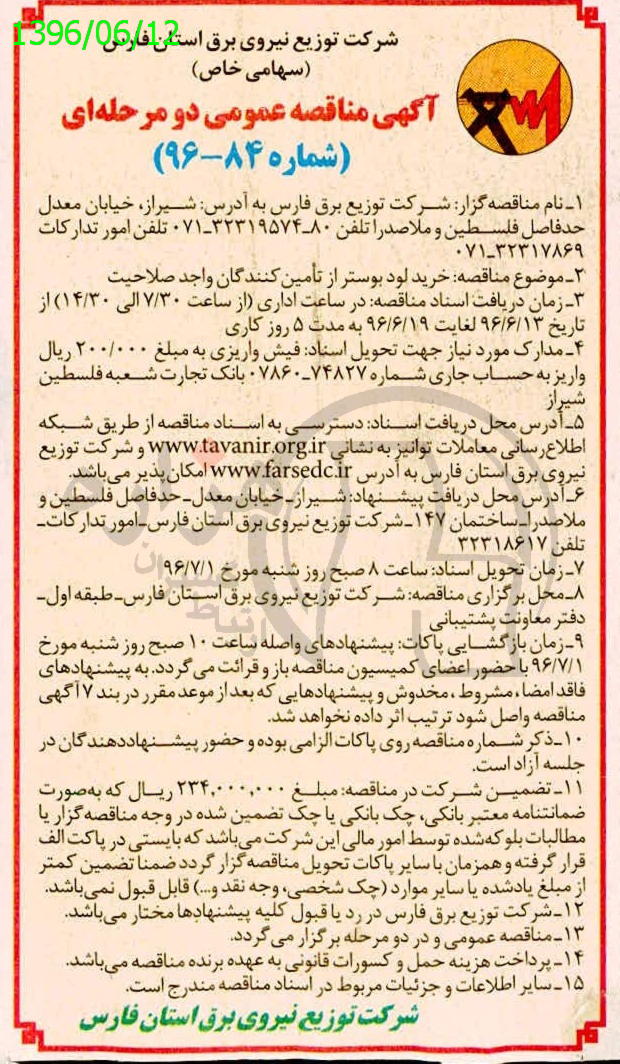 1396/06/12
شرکت توزیع نیروی برق استان فارس
(سهامی خاص)
آگهی مناقصه عمومی دو مرحله‌ای
(شماره ۸۴-۹۶)
۱ـ نام مناقصه‌گزار: شرکت توزیع برق فارس به آدرس: شیراز، خیابان معدل
حدفاصل فلسطین و ملاصدرا تلفن ۸۰ـ۳۲۳۱۹۵۷۴ـ۰۷۱ تلفن امور تدارکات
۳۲۳۱۷۸۶۹ـ۰۷۱
۲ـ موضوع مناقصه: خرید لود بوستر از تأمین‌کنندگان واجد صلاحیت
۳ـ زمان دریافت اسناد مناقصه: در ساعت اداری (از ساعت ۷/۳۰ الی ۱۴/۳۰) از
تاریخ ۹۶/۶/۱۳ لغایت ۹۶/۶/۱۹ به مدت ۵ روز کاری
۴ـ مدارک مورد نیاز جهت تحویل اسناد: فیش واریزی به مبلغ ۲۰۰/۰۰۰ ریال
واریز به حساب جاری شماره ۷۴۸۲۷ـ۰۷۸۶۰ بانک تجارت شعبه فلسطین
شیراز
۵ـ آدرس محل دریافت اسناد: دسترسی به اسناد مناقصه از طریق شبکه
اطلاع‌رسانی معاملات توانیر به نشانی www.tavanir.org.ir و شرکت توزیع
نیروی برق استان فارس به آدرس www.farsedc.ir امکان‌پذیر می‌باشد.
۶ـ آدرس محل دریافت پیشنهاد: شیراز ـ خیابان معدل ـ حدفاصل فلسطین و
ملاصدرا ـ ساختمان ۱۴۷ ـ شرکت توزیع نیروی برق استان فارس ـ امور تدارکات ـ
تلفن ۳۲۳۱۸۶۱۷
۷ـ زمان تحویل اسناد: ساعت ۸ صبح روز شنبه مورخ ۹۶/۷/۱
۸ـ محل برگزاری مناقصه: شرکت توزیع نیروی برق استان فارس ـ طبقه اول ـ
دفتر معاونت پشتیبانی
۹ـ زمان بازگشایی پاکات: پیشنهادهای واصله ساعت ۱۰ صبح روز شنبه مورخ
۹۶/۷/۱ با حضور اعضای کمیسیون مناقصه باز و قرائت می‌گردد. به پیشنهادهای
فاقد امضا، مشروط، مخدوش و پیشنهادهایی که بعد از موعد مقرر در بند ۷ آگهی
مناقصه واصل شود ترتیب اثر داده نخواهد شد.
۱۰ـ ذکر شماره مناقصه روی پاکات الزامی بوده و حضور پیشنهاددهندگان در
جلسه آزاد است.
۱۱ـ تضمین شرکت در مناقصه: مبلغ ۲۳۴,۰۰۰,۰۰۰ ریال که به‌صورت
ضمانتنامه معتبر بانکی، چک بانکی یا چک تضمین شده در وجه مناقصه‌گزار یا
مطالبات بلوکه‌شده توسط امور مالی این شرکت می‌باشد که بایستی در پاکت الف
قرار گرفته و همزمان با سایر پاکات تحویل مناقصه‌گزار گردد ضمنا تضمین کمتر
از مبلغ یادشده یا سایر موارد (چک شخصی، وجه نقد و...) قابل قبول نمی‌باشد.
۱۲ـ شرکت توزیع برق فارس در رد یا قبول کلیه پیشنهادها مختار می‌باشد.
۱۳ـ مناقصه عمومی و در دو مرحله برگزار می‌گردد.
۱۴ـ پرداخت هزینه حمل و کسورات قانونی به عهده برنده مناقصه می‌باشد.
۱۵ـ سایر اطلاعات و جزئیات مربوط در اسناد مناقصه مندرج است.
شرکت توزیع نیروی برق استان فارس